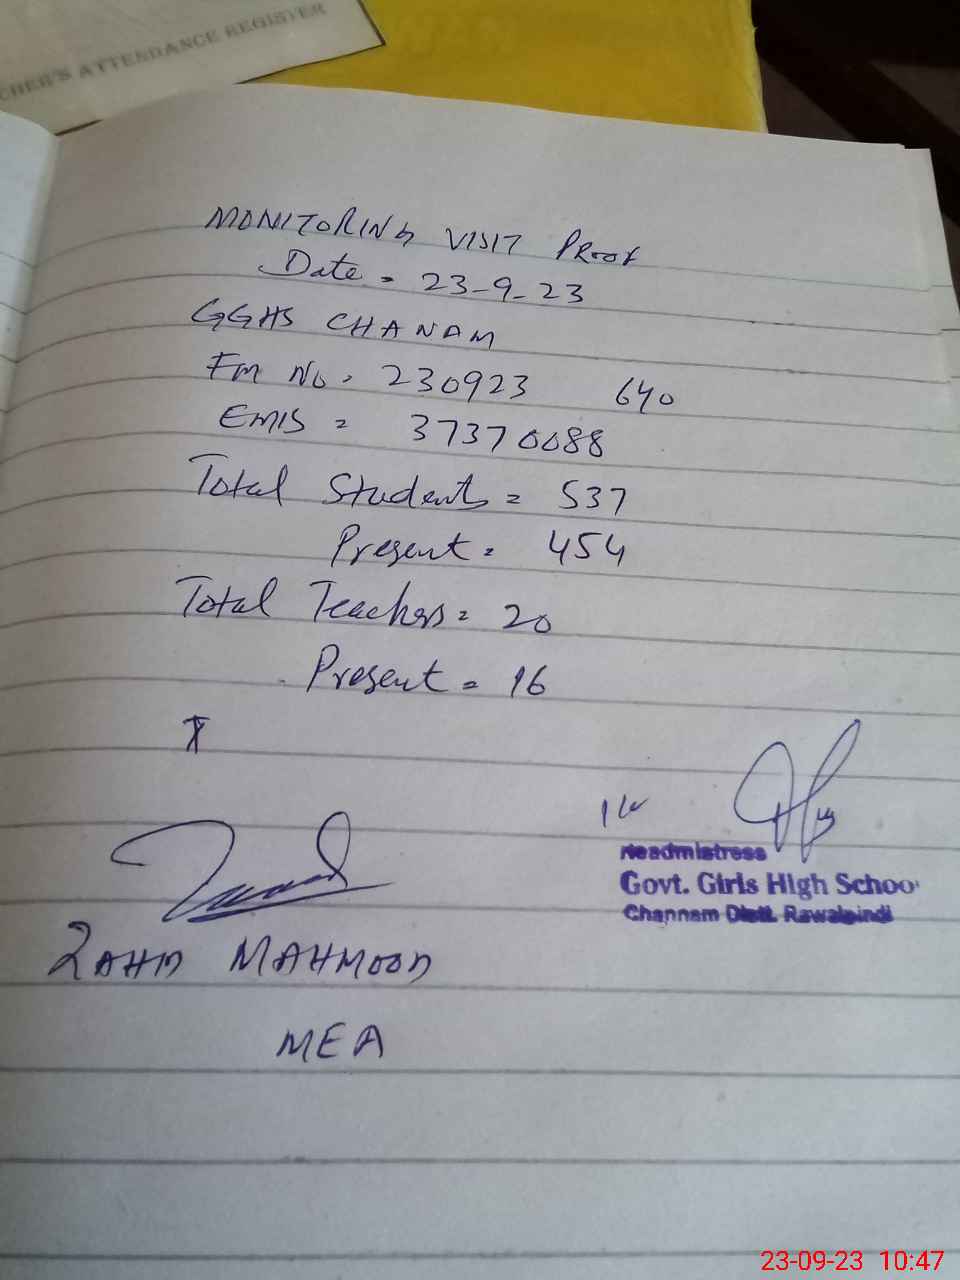 CHER'S ATTENDANCE REGISTER
MONITORING VISIT PROOF
Date = 23-9-23
GGHS CHANAM
Fm No. 230923 640
EMIS = 37370088
Total Students = 537
Present = 454
Total Teachers = 20
Present = 16
Headmistress
Govt. Girls High Schoo
Channam Distt. Rawalpindi
MAHMOOD
MEA
23-09-23 10:47